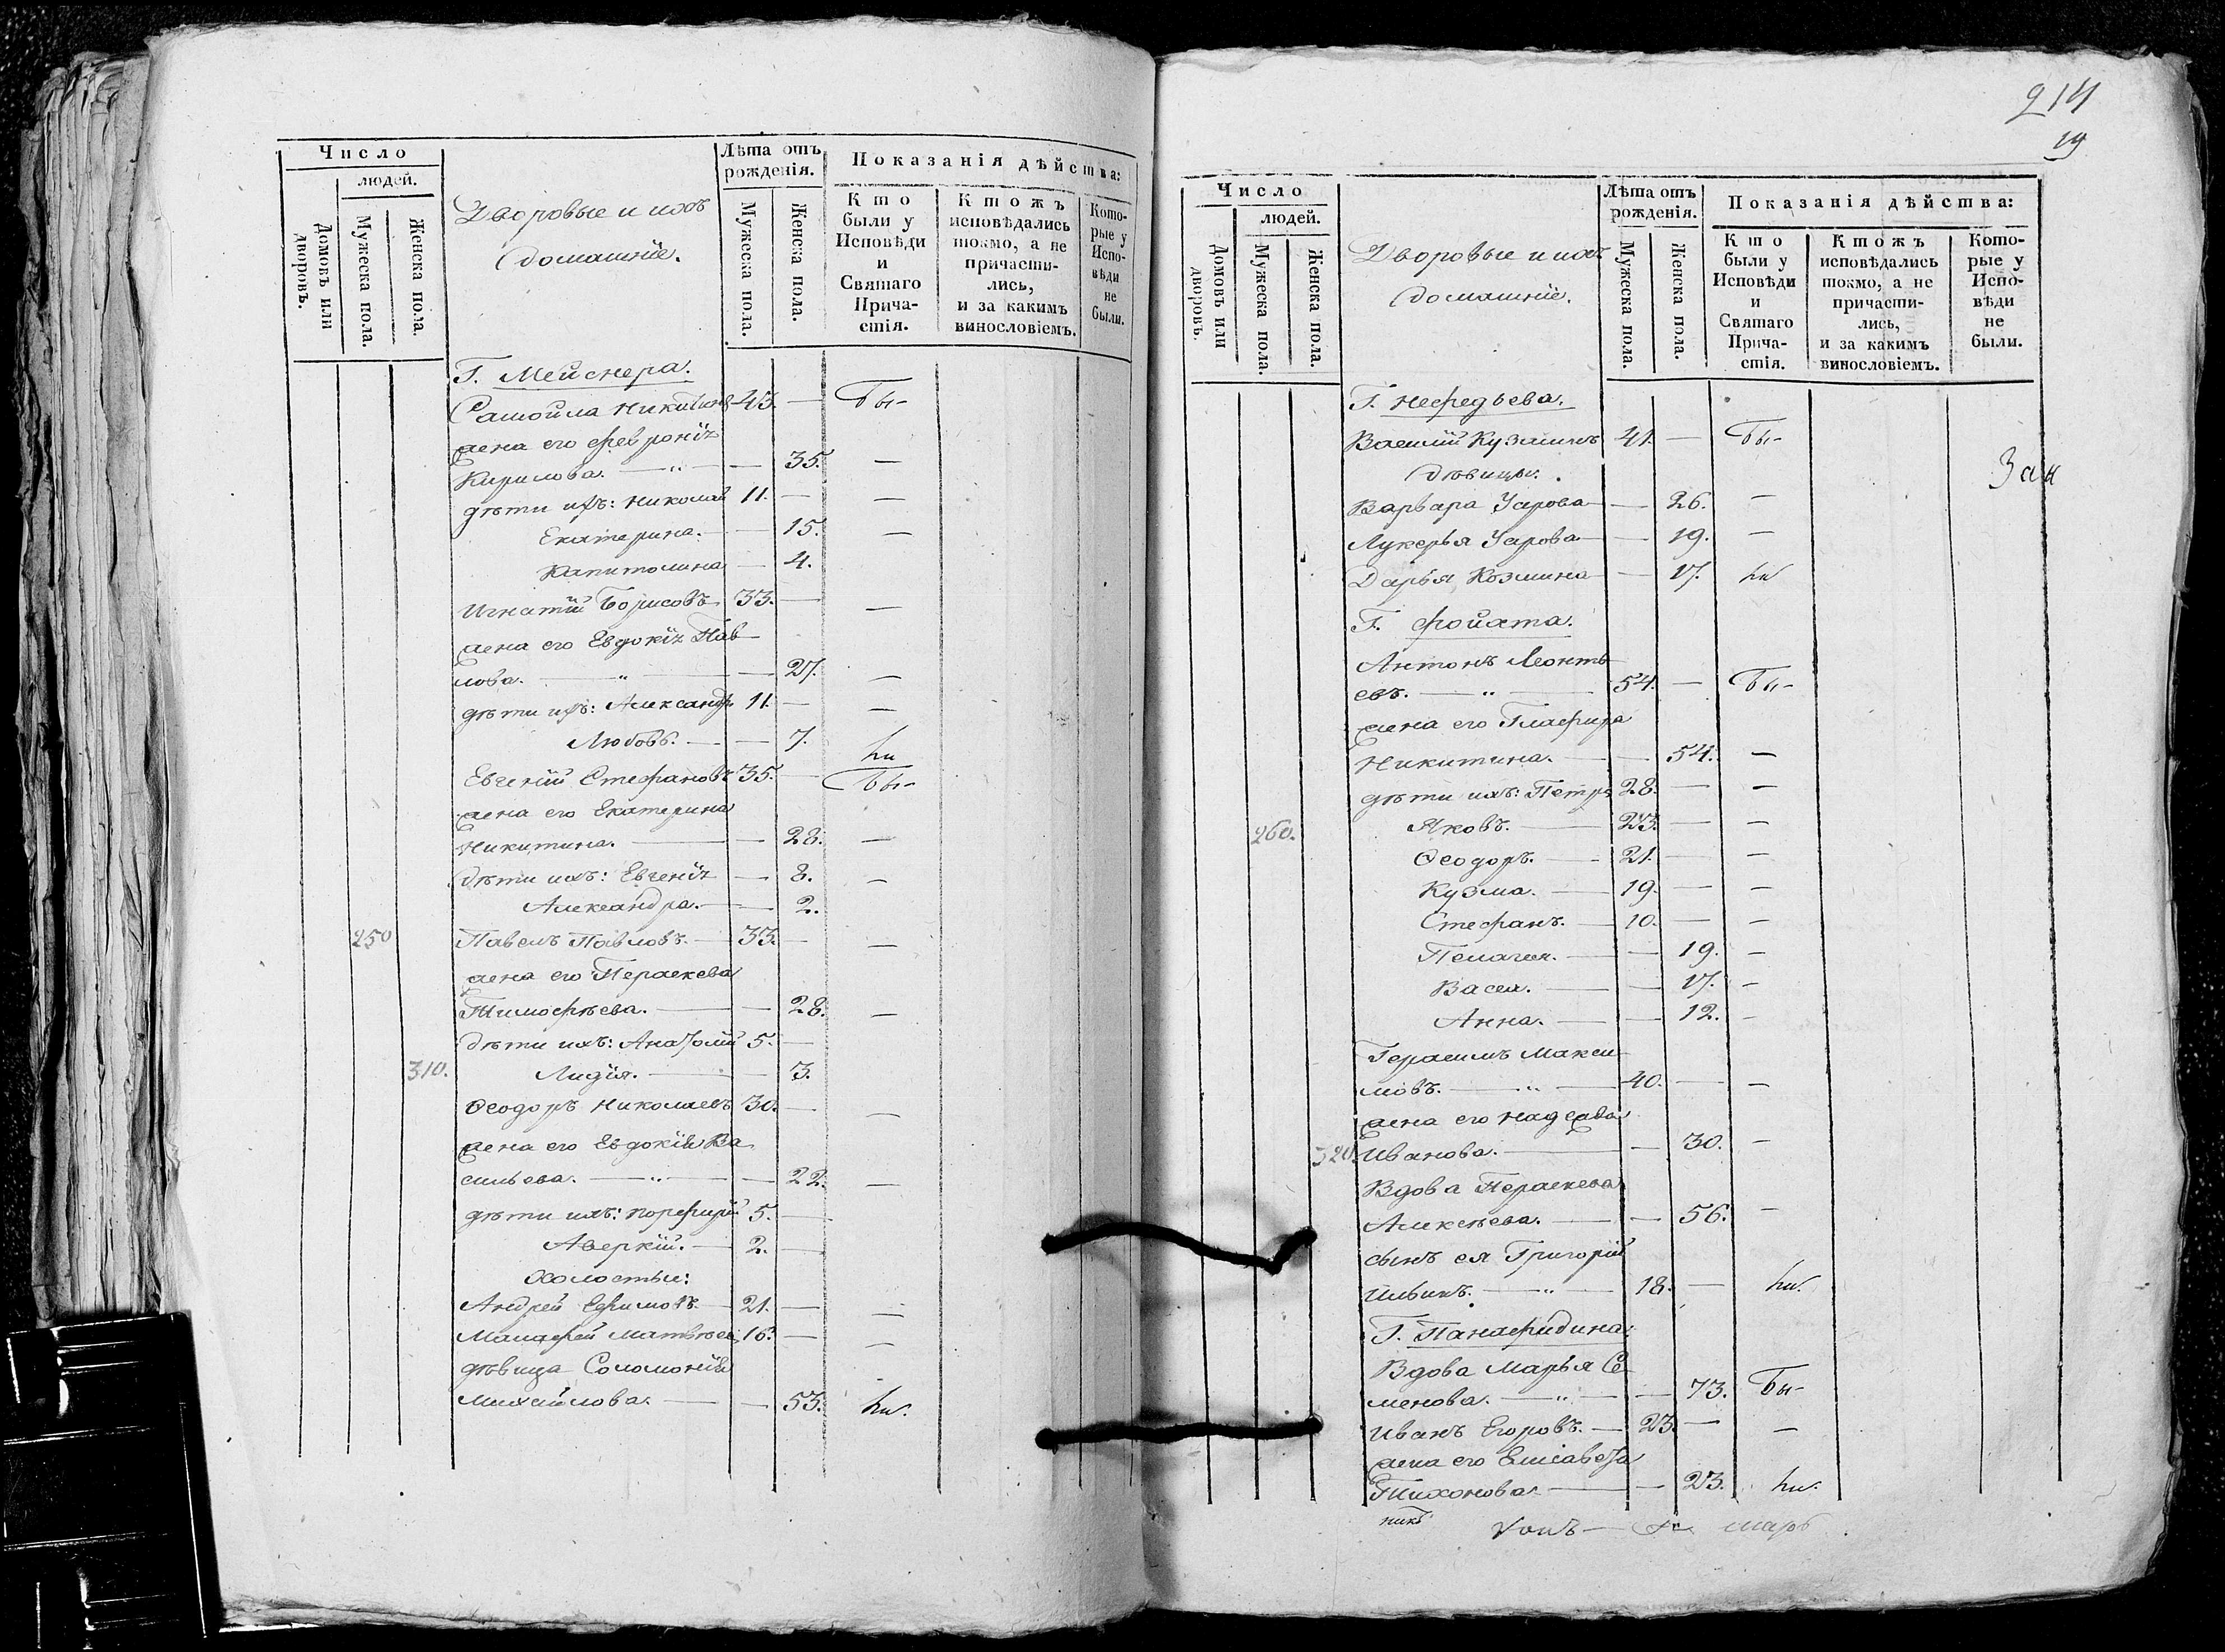 Число
людей.
Домовъ или дворовъ.
Мужеска пола.
Женска пола.
Дворовые и ихъ
домашніе.
Лѣта отъ
рожденія.
Мужеска пола.
Женска пола.
Показанія дѣйства:
Кто были у Исповѣди и Святаго Прича-стія.
Ктожъ исповѣдались токмо, а не причасти-лись, и за какимъ винословіемъ.
Кото-рые у Испо-вѣди не были.
Г. Мейснера.
Самойла Никитинъ 43. — бы-
жена его Феѵронія
Кирилова. — " — — 35. —
дѣти ихъ: Николай 11. — —
Екатерина. — — 15. —
Капитолина — 4.
Игнатій Борисовъ 33. — —
жена его Евдокія Пав-
лова. — " — — 27. —
дѣти ихъ: Александръ 11. — —
Любовь. — — 7. ни
Евгеній Стефановъ 35. — бы-
жена его Екатерина
Никитина. — — 28. —
дѣти ихъ: Евгенія — 8. —
Александра. — — 2.
250 Павелъ Павловъ. — 33. — —
жена его Пераскева
Тимофѣева. — — 28. —
дѣти ихъ: Анатолій 5. —
310. Лидія. — — 3.
Ѳеодоръ Николаевъ 30. — —
жена его Евдокія Ва-
сильева. — " — — 22. —
дѣти ихъ: Порфирій 5. —
Аверкій. — 2. —
Холостые:
Андрей Ефимовъ — 21. — —
Малафей Матвѣевъ 16. — —
дѣвица Соломонія
Михайлова. — — 53. ни.
214
19
Число
людей.
Домовъ или дворовъ.
Мужеска пола.
Женска пола.
Дворовые и ихъ
домашніе.
Лѣта отъ
рожденія.
Мужеска пола.
Женска пола.
Показанія дѣйства:
Кто были у Исповѣди и Святаго Прича-стія.
Ктожъ исповѣдались токмо, а не причасти-лись, и за какимъ винословіемъ.
Кото-рые у Испо-вѣди не были.
Г. Нефедьева.
Василій Кузминъ 41. — бы-
За
дѣвицы.
Варвара Уарова — — 26. —
Лукерья Уарова — — 19. —
Дарья Козмина — — 17. ни
Г. Фойхта.
Антонъ Леонть-
евъ. — " — 54. — бы-
жена его Глафира
Никитина. — — 54. —
дѣти ихъ: Петръ 28. — —
260. Яковъ. — 23. — —
Ѳеодоръ. — 21. — —
Кузма. — 19. — —
Стефанъ. — 10. — —
Пелагея. — — 19. —
Васса. — — 17. —
Анна. — — 12. —
Герасимъ Макси-
мовъ. — " — 40. — —
жена его Надежда
320. Иванова. — — 30. —
Вдова Пераскева
Алексѣева. — — 56. —
сынъ ея Григорій
Ильинъ. — " — 18. — ни.
Г. Панафидина:
Вдова Марья Се-
менова. — " — — 73. бы-
Иванъ Егоровъ. — 23. — —
жена его Елисавета
Тихонова. — — 23. ни.